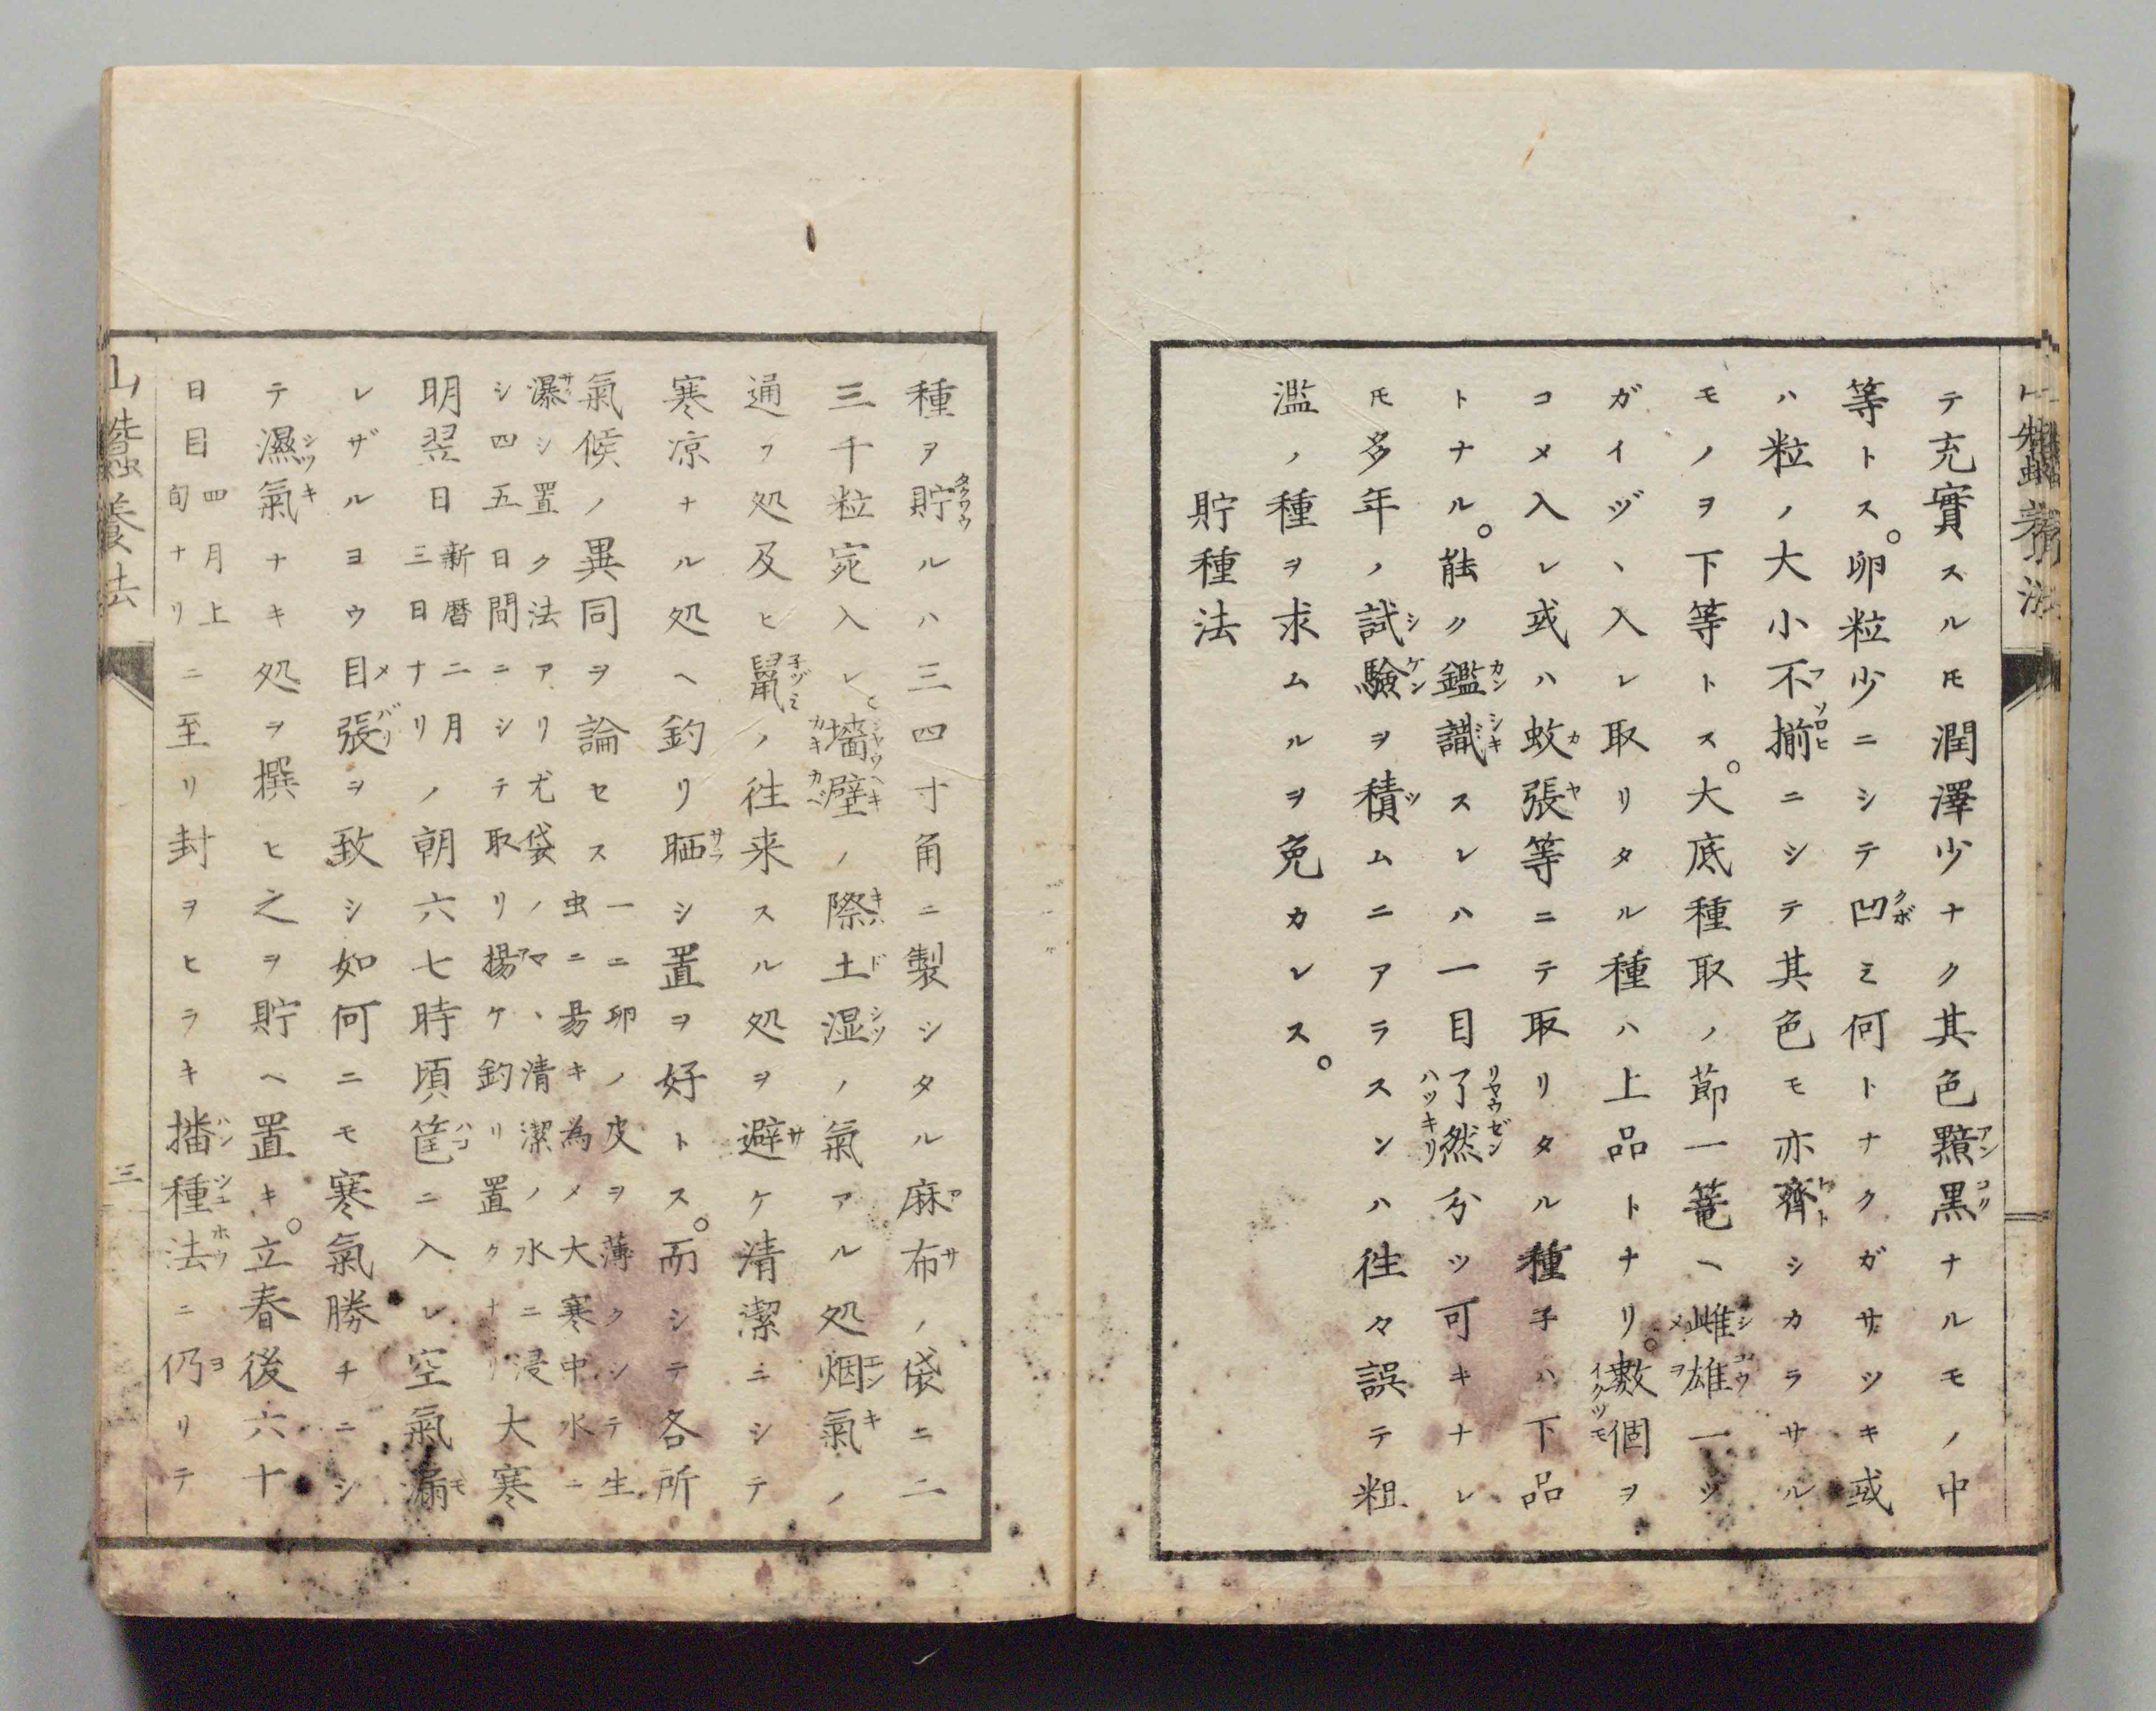 テ充實スルㇳモ潤澤少ナク其色黯黒ナルモノ中
等トス。卵粒少ニシテ凹ミ何トナクガサツキ或
ハ粒ノ大小不揃ニシテ其色モ亦齊シカラサル
モノヲ下等トス。大底種取ノ節一篭ヘ雌雄一ツ
ガイヅヽ入レ取リタル種ハ上品トナリ。數個ヲ
コメ入レ或ハ蚊張等ニテ取リタル種子ハ下品
トナル。能ク鑑識スレハ一目了然分ツ可キナレ
𪜈多年ノ試驗ヲ積ムニアラスンハ徃々誤テ粗
濫ノ種ヲ求ムルヲ免カレス。
貯種法
種ヲ貯ルハ三四寸角ニ製シタル麻布ノ袋ニ二
三千粒宛入レ墻壁ノ際土湿ノ氣アル処烟氣ノ
通フ処及ヒ鼠ノ徃来スル処ヲ避ケ清潔ニシテ
寒凉ナル処ヘ釣リ晒シ置ヲ好トス。而シテ各所
氣候ノ異同ヲ論セス
一ニ卵ノ皮ヲ薄クシテ生
虫ニ易キ為メ大寒中水ニ
瀑シ置ク法アリ尤袋ノマヽ清潔ノ水ニ浸
シ四五日間ニシテ取リ揚ケ釣リ置クナリ
大寒
明翌日
新暦二月
三日ナリ
ノ朝六七時頃筐ニ入レ空氣漏
レザルヨウ目張ヲ致シ如何ニモ寒氣勝チニシ
テ濕氣ナキ処ヲ撰ヒ之ヲ貯ヘ置キ。立春後六十
日目
四月上
旬ナリ
ニ至リ封ヲヒラキ播種法ニ仍リテ
山蠶養法
三